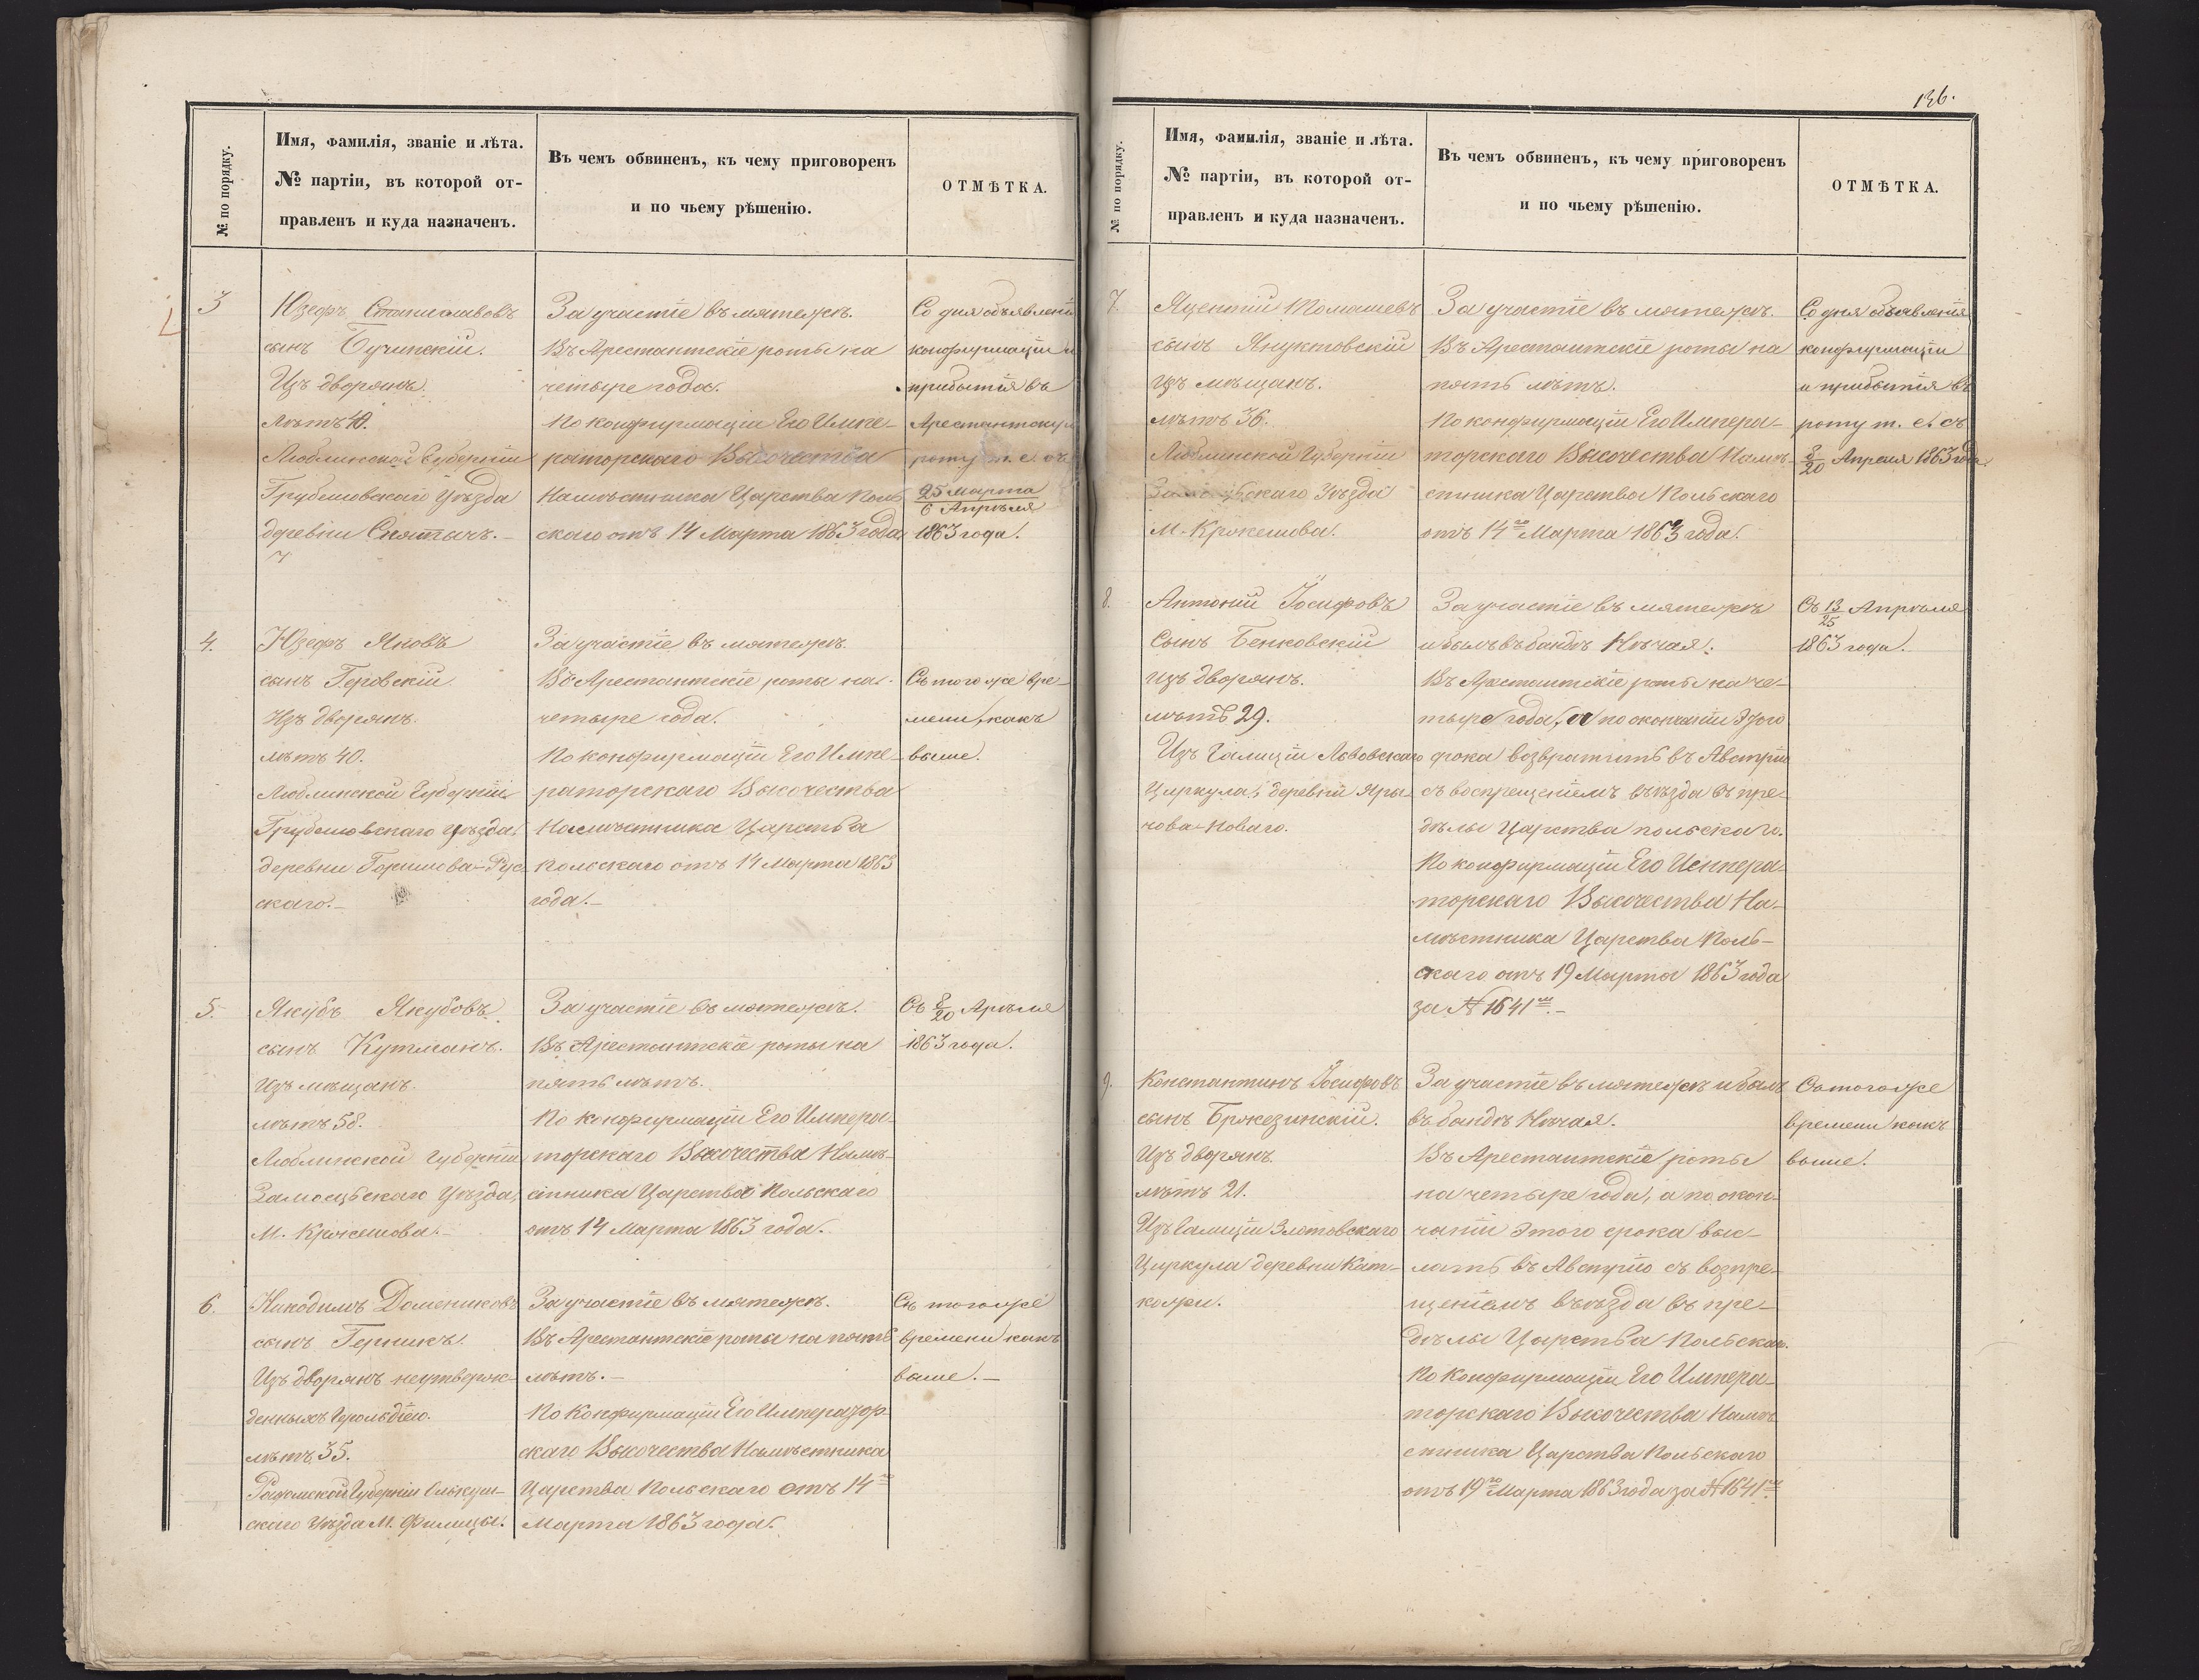 № по порядку.
Имя, фамилія, званіе и лѣта.
№ партіи, въ которой от-
правленъ и куда назначенъ.
Въ чемъ обвиненъ, къ чему приговоренъ
и по чьему рѣшенію.
ОТМѢТКА.
3
Юзефъ Станиславовъ
сынъ Бучинскій.
Изъ дворянъ.
лѣтъ 40.
Люблинской Губерніи
Грубешовскаго Уѣзда
деревни Снятычъ.-
За участіе въ мятежѣ.
Въ Арестантскіе роты на
четыре года.
По конфирмаціи Его Импе-
раторскаго Высочества
Намѣстника Царства Поль
скаго отъ 14 Марта 1863 года
Со дня объявленія
конфирмаціи и
прибытія въ
Арестантскую
роту т. е. съ
25 Марта
6 Апрѣля
1863 года.
4.
Юзефъ Яновъ
сынъ Геровскій
Изъ дворянъ.
лѣтъ 40.
Люблинской Губерніи
Грубешовскаго Уѣзда
деревни Горишова-Рус
скаго.-
За участіе въ мятежѣ.
Въ Арестантскіе роты на
четыре года.
По конфирмаціи Его Импе-
раторскаго Высочества
Намѣстника Царства
Польскаго отъ 14 Марта 1863
года.-
Съ того же вре-
мени, какъ
выше.
5.
Якубъ Якубовъ
сынъ Кутманъ.
Изъ мѣщанъ.
лѣтъ 58.
Люблинской Губерніи
Замосцьскаго Уѣзда,
М. Кржешова.-
За участіе въ мятежѣ.
Въ Арестантскіе роты на
пять лѣтъ.
По конфирмаціи Его Импера-
торскаго Высочества Намѣ-
стника Царства Польскаго
отъ 14 Марта 1863 года.
Съ 8/20 Арѣля
1863 года.
6.
Никодимъ Домениковъ
сынъ Герникъ.
Изъ дворянъ неутверж-
денныхъ Герольдіею.
лѣтъ 35.
Радомской Губерніи Олькуш-
скаго Уѣзда М. Филицы.
За участіе въ мятежѣ.
Въ Арестантскіе роты на пять
лѣтъ.-
По Конфирмаціи Его Император-
скаго Высочества Намѣстника
Царства Польскаго отъ 14го
Марта 1863 года.
Съ того же
времени какъ
выше.-
136.
№ по порядку.
Имя, фамилія, званіе и лѣта.
№ партіи, въ которой от-
правленъ и куда назначенъ.
Въ чемъ обвиненъ, къ чему приговоренъ
и по чьему рѣшенію.
ОТМѢТКА.
7.
Яцентій Томашевъ
сынъ Януктовскій
изъ мѣщанъ.
лѣтъ 36.
Люблинской Губерніи
Замосцьскаго Уѣзда
М. Кржешова.
За участіе въ мятежѣ.
Въ Арестантскіе роты на
пять лѣтъ.
По конфирмаціи Его Импера-
торскаго Высочества Намѣ-
стника Царства Польскаго
отъ 14го Марта 1863 года.
Со дня объявленія
конфирмаціи
и прибытія въ
роту т. е. съ
8/20 Апреля 1863 года
8.
Антоній Іосифовъ
Сынъ Бенковскій
изъ дворянъ.
лѣтъ 29.
Изъ Галиціи Львовскаго
Циркула, деревни Яры-
чова-Новаго.
За участіе въ мятежѣ
и былъ въ бандѣ Нѣчая.
Въ Арестантскіе роты на че-
тыре года, а по окончаніи этого
срока возвратить въ Австрію
съ воспрещеніемъ въѣзда въ пре-
дѣлы Царства Польскаго.
По конфирмаціи Его Импера-
торскаго Высочества На-
мѣстника Царства Поль-
скаго отъ 19 Марта 1863 года
за № 1641мъ.-
Съ 13/25 Апрѣля
1863 года.
9.
Константинъ Іосифовъ
сынъ Бржезинскій.
Изъ дворянъ.
лѣтъ 21.
Изъ Галиціи Злотовскаго
Циркула деревни Кат-
кожи.
За участіе въ мятежѣ и былъ
въ бандѣ Нѣчая.
Въ Арестантскіе роты
на четыре года, а по окон-
чаніи этого срока выс-
лать въ Австрію съ возпре-
щеніемъ въѣзда въ пре-
дѣлы Царства Польскаго.
По Конфирмаціи Его Импера-
торскаго Высочества Намѣ-
стника Царства Польскаго
отъ 19го Марта 1863 года за № 1641мъ
Съ того же
времени какъ
выше.